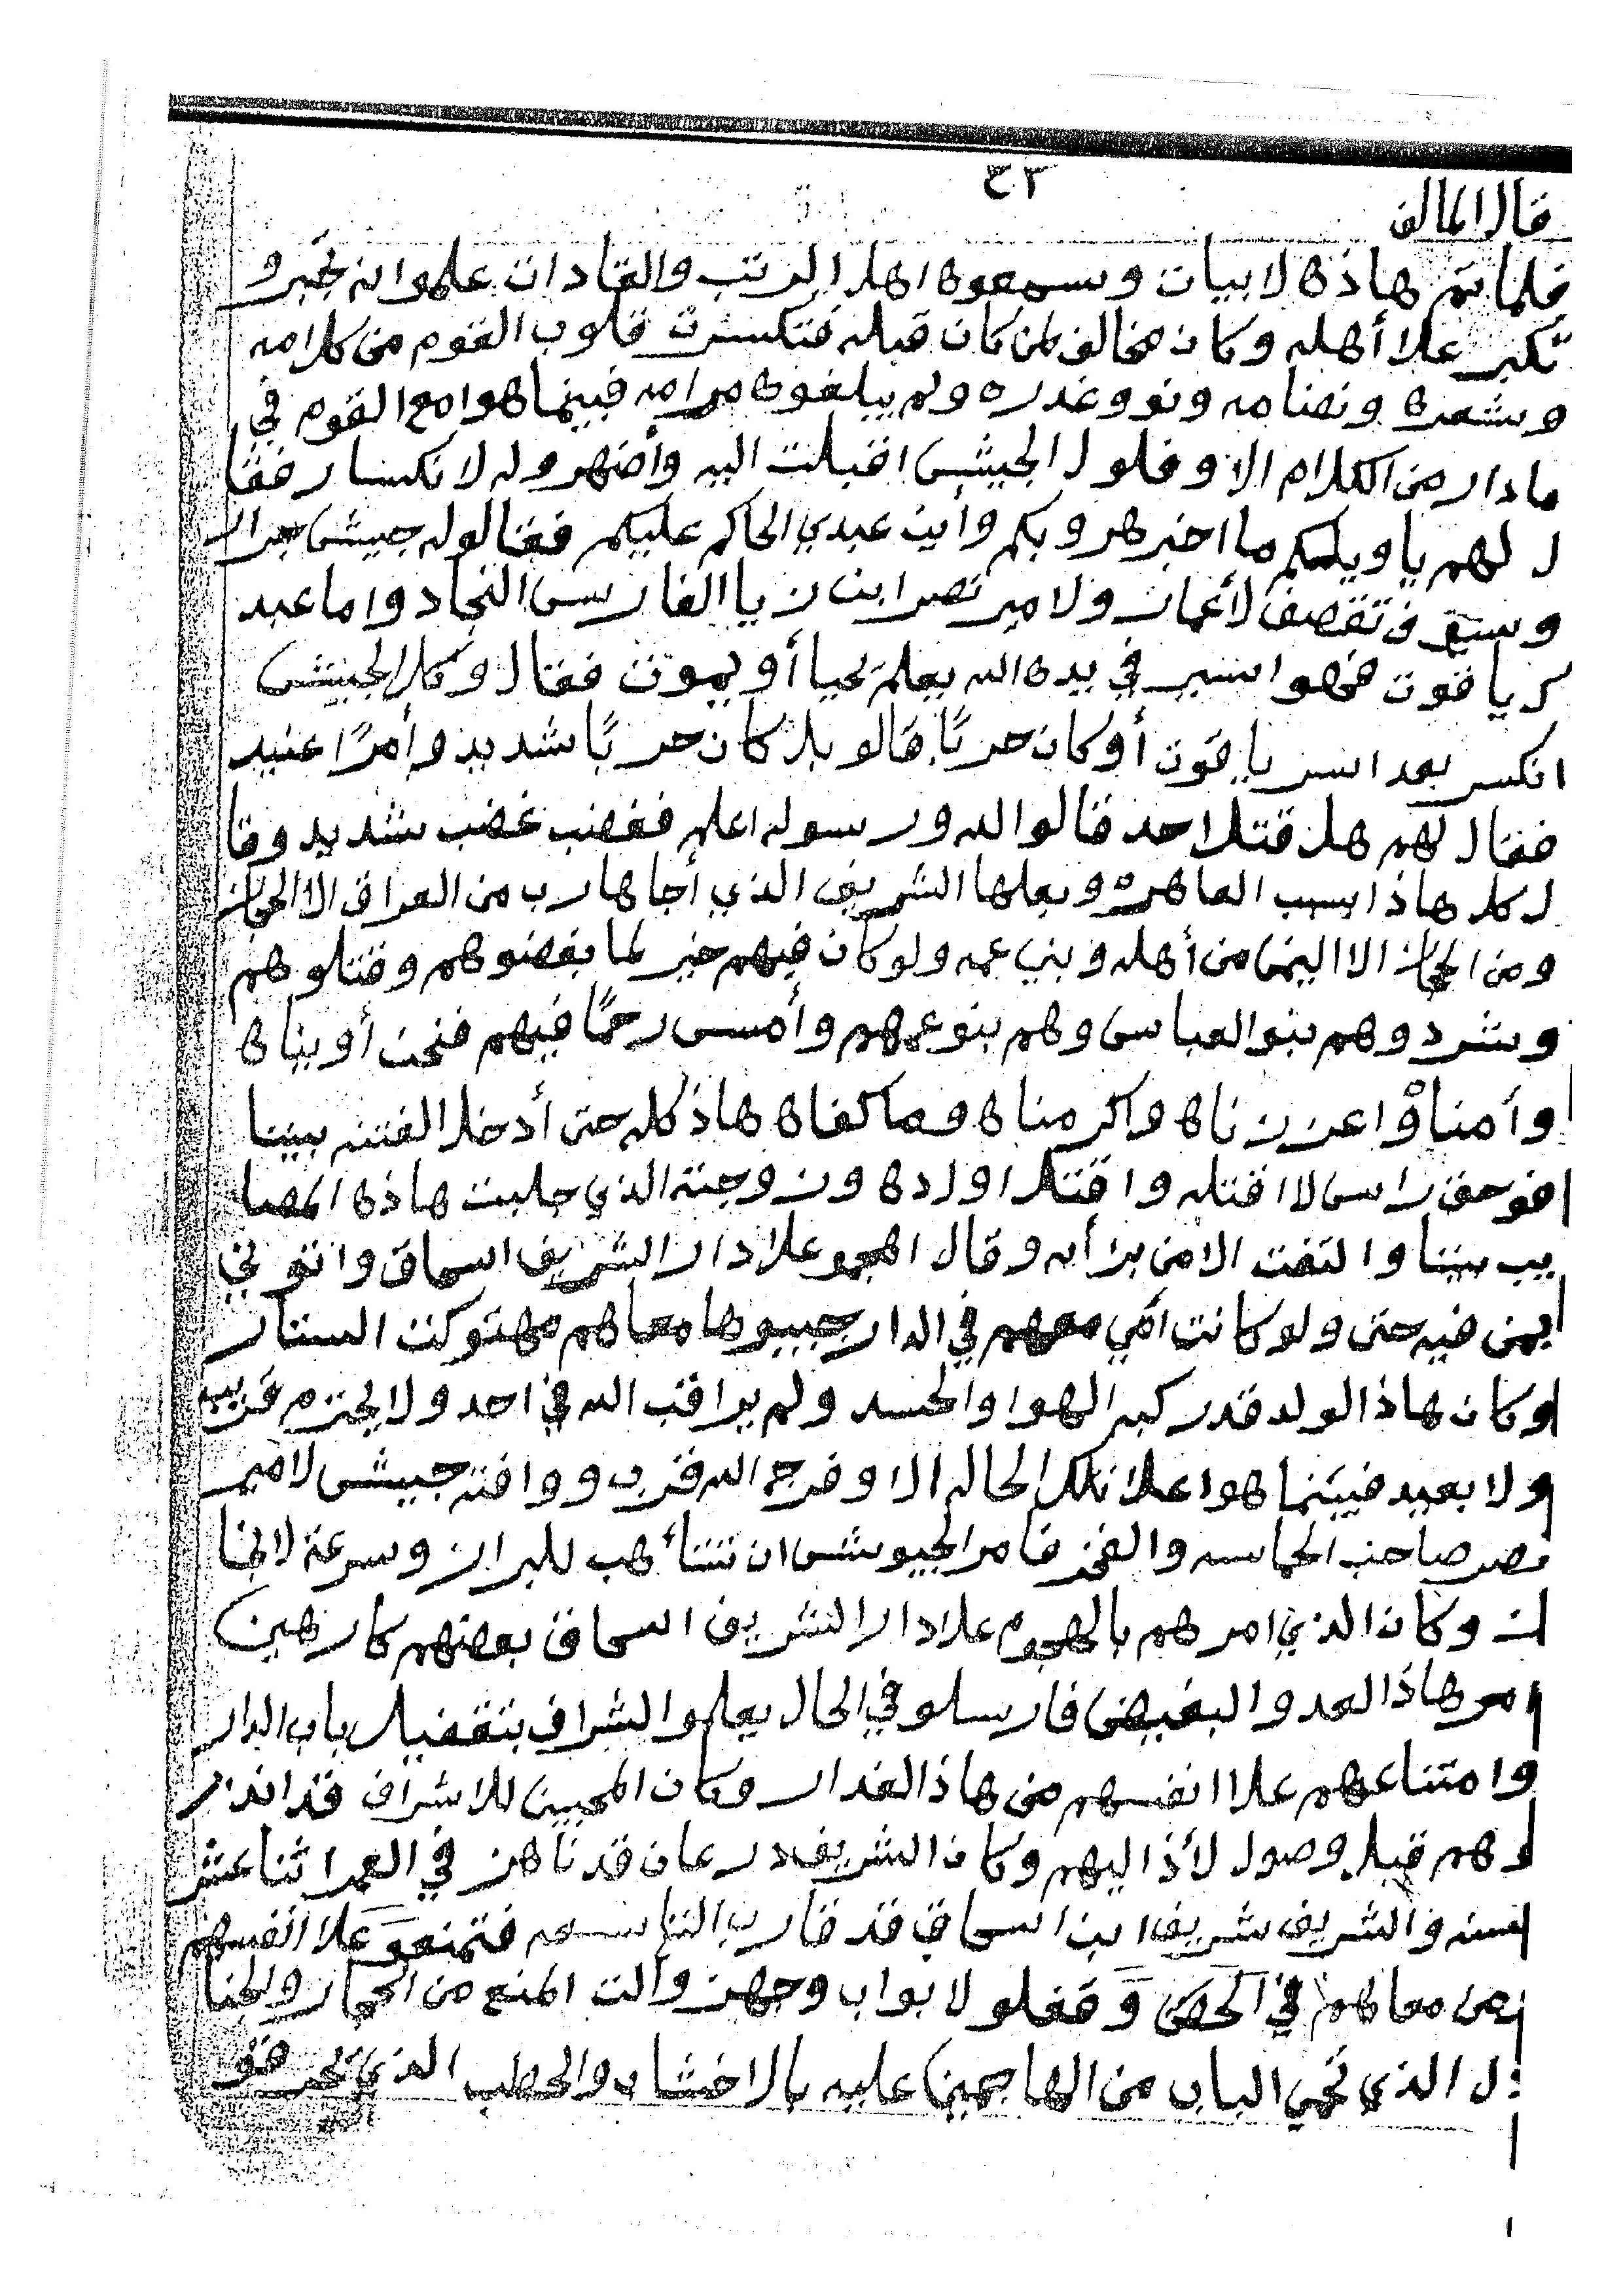 ٤٣
قال المالف
فلما تم هاذه لابيات وسمعوه اهل الرتب والقادات علموا انه تجبر و
تكبر علا أهله وكان مخالف لمن كان قبله فتكسرت قلوب القوم من كلامه
وشعره ونضامه ونوو غدره ولم يبلغوه مرامه فبينما هوا مع القوم في
مادار من الكلام الا وفلول الجيش اقبلت اليه وأضهرو له لانكسار فقا
ل لهم يا ويلكم ما اخبرهروبكم وأين عبدي الحاكم عليكم فقالو له جيش جرار
وسيوف تقصف لأعمار ولامير نصر ابن زيا الفارس النجاد واما عبد
ك ياقوت فهوا اسير في يده الله يعلم يحيا أو يموت فقال وكل الجيش
انكسر بعد اسر ياقوت أو كان حربًا قالو بل كان حربًا شديد وأمرًا عنيد
فقال لهم هل قتل احد قالو الله ورسوله اعلم فغضب غضب شديد وقا
ل كل هاذا بسبب العاهره وبعلها الشريف الذي أجا هارب من العراق الا الحجاز
ومن الحجاز الا اليمن من أهله وبني عمه ولو كان فيهم خير لما بغضوهم وقتلوهم
وشردوهم بنو العباس وهم بنو عمهم وأمس رحمًا فيهم فنحن أويناه
وأمناه واعززناه واكرمناه وما كفاه هاذ كله حتى أدخل الفتنه بيننا
فوحق راسي لا اقتله واقتل اولده وزوجته الذي جلبت هاذه المصا
يب بيننا والتفت الا من برأيه وقال اهجمو علا دار الشريف اسحاق واتوني
بمن فيه حتى ولو كانت أمي معهم في الدار جيبوها معاهم مهتوكت الستار
وكان هاذ الولد قد ركبه الهوا والحسد ولم يراقب الله في احد ولا يحترم قريب
ولا بعيد فبينما هوا علا تلك الحاله الا وفرج الله قرب ووافته جيش لامير
نصر صاحب الحماسه والفخر فامر الجيوش ان تتأهب للبراز وسرعة لانجا
ز وكان الذي امرهم بالهجوم علا دار الشريف اسحاق بعضهم كارهين
امر هاذ العدو البغيض فارسلو في الحال يعلمو الشراف بتقفيل باب الدار
وامتناعهم علا انفسهم من هاذ الغدار وكان المحبين للاشراف قد انذر
وهم قبل وصول لأذا اليهم وكان الشريف درعان قد ناهز في العمر اثنا عشر
سنه والشريف شريف ابن اسحاق قد قارب التاسعه فتمنعو علا انفسهم
من معاهم في الحصن وقفلو لابواب وجهزو ألت المنع من الحجار والجنا
دل الذي تحمي الباب من الهاجمين عليه بالاخشاب والحطب الذي تحرقو